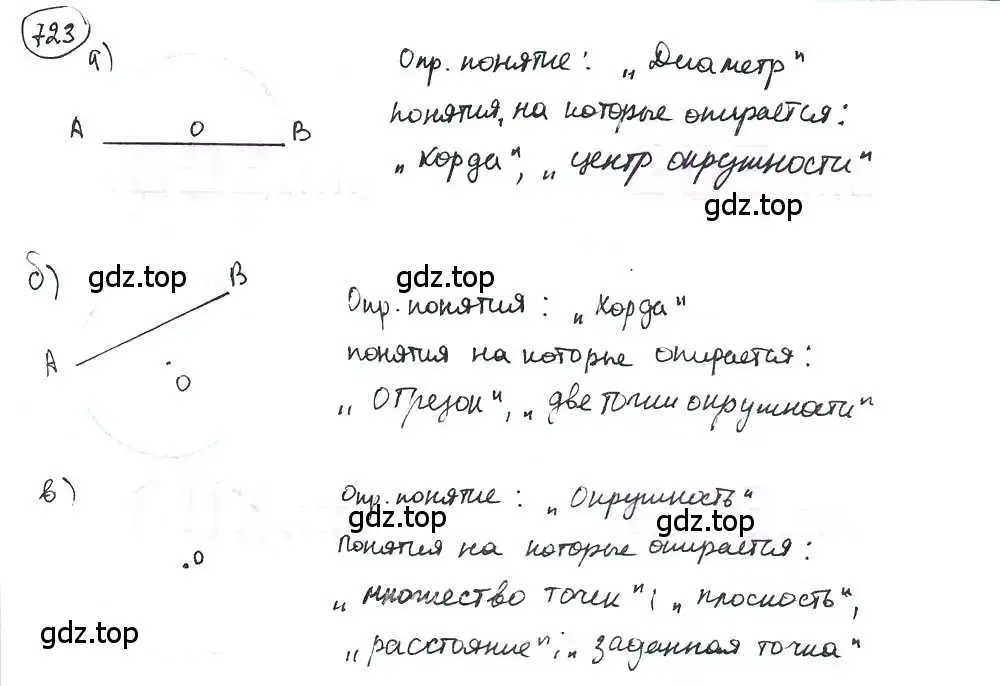 723
а)
A O B
Опр. понятие: „Диаметр"
понятия, на которые опирается:
„хорда", „центр окружности"
gdz.top
б)
gdz.top
gdz.top
B
A
O
Опр. понятия: „Хорда"
понятия на которые опирается:
„Отрезок", „две точки окружности"
в)
O
Опр. понятие: „Окружность"
gdz.top
gdz.top
Понятия на которые опирается:
„множество точек"; „плоскость",
gdz.top
„расстояние"; „заданная точка"